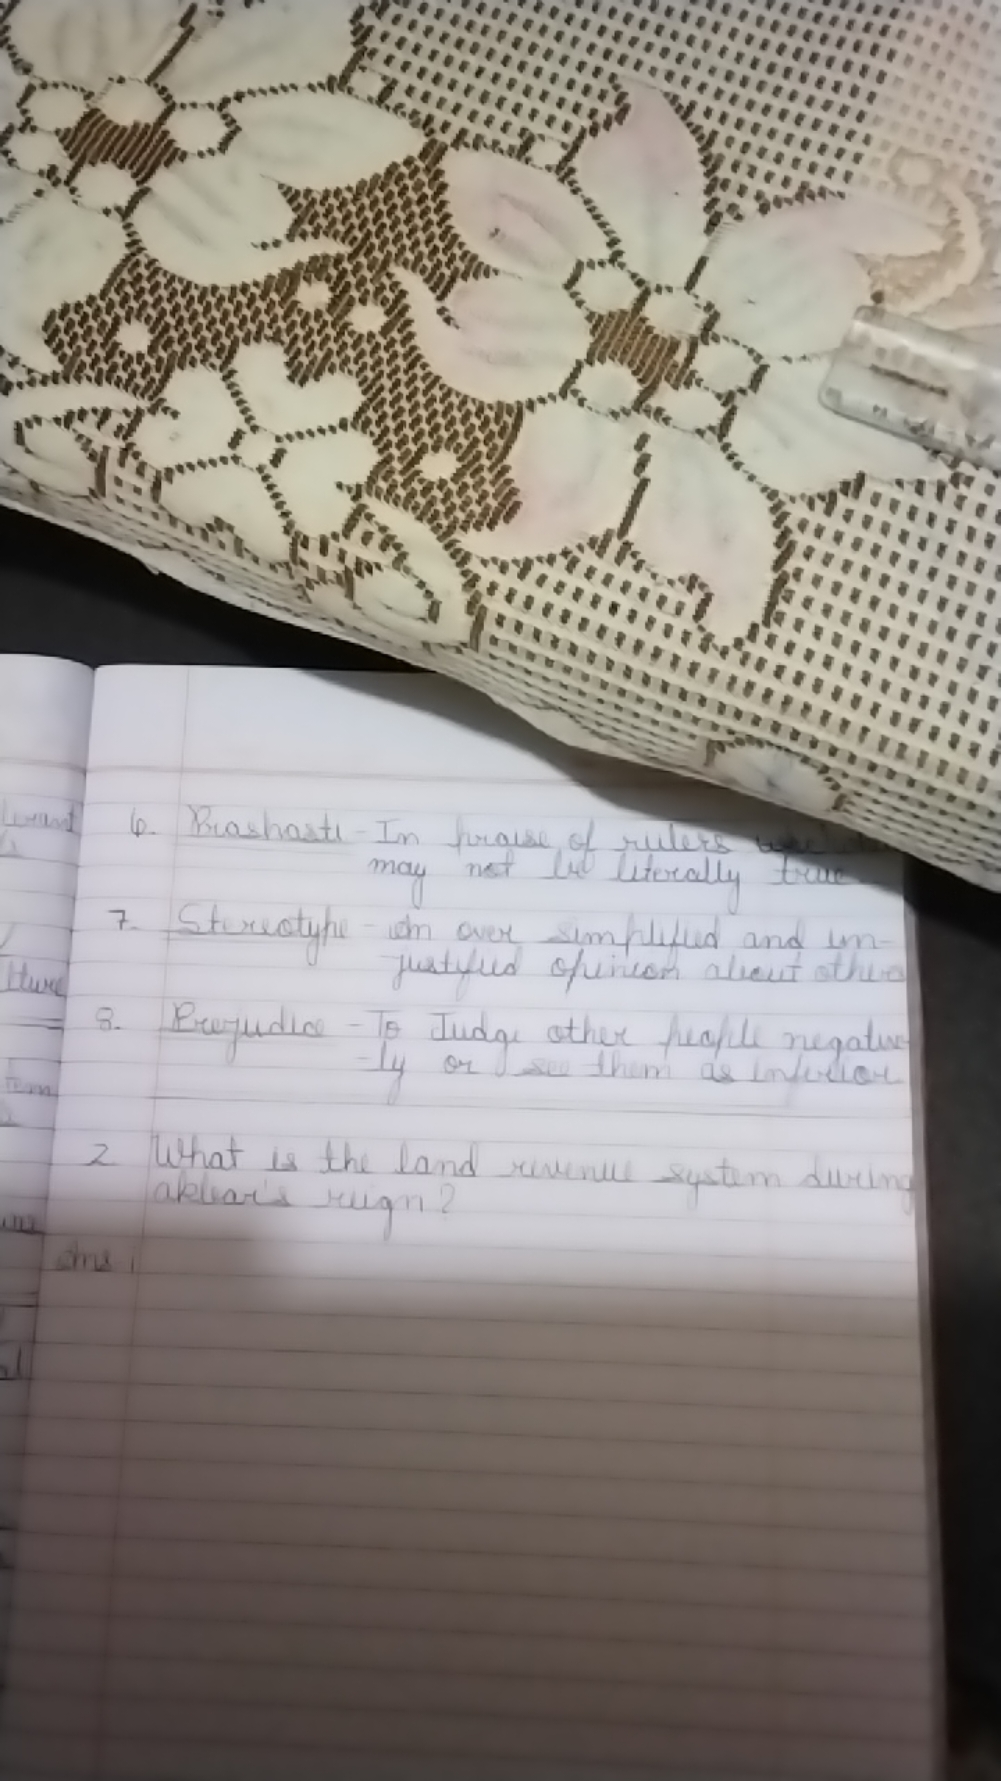 6. Prashasti - In praise of rulers
may not be literally true
7. Stereotype - An over simplified and un-
justified opinion about others
8. Prejudice - To Judge other people negative
-ly or see them as inferior
2 What is the land revenue system during
akbar's reign?
Ans